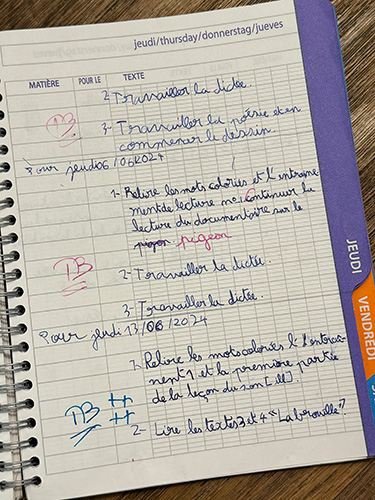 jeudi/thursday/donnerstag/jueves
MATIÈRE POUR LE TEXTE
2-Travailler la dictée.
TB
3-Travailler la poésie et en
commencer le dessin.
Pour jeudi 06/06/2024
1-Relire les mots coloriés et l'entraine
ment de lecture n°1, Continuer la
lecture du documentaire sur le
pigeon
TB
2-Travailler la dictée.
3-Travailler la dictée.
Pour jeudi 13/06/2024
1-Relire les mots coloriés, l'entrai-
nement 1 et la première partie
de la leçon du son [ill].
TB ++
++
2-Lire les textes 3 et 4 "La brouille".
JEUDI
VENDREDI